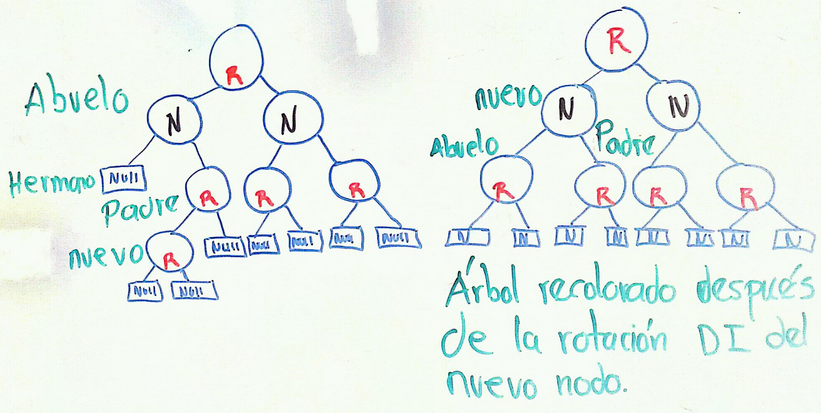 R
Abuelo
N
N
Hermano
Null
Padre
R
R
R
nuevo
R
Null
Null
Null
Null
Null
Null
Null
R
nuevo
N
N
Abuelo
Padre
R
R
R
R
N
N
N
N
N
N
N
N
Árbol recolorado después
de la rotación DI del
nuevo nodo.